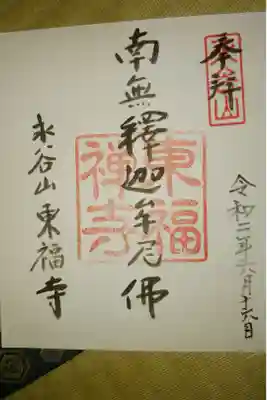 奉拝
令和二年六月十六日
南無釋迦牟尼佛
東福禅寺
永谷山東福寺